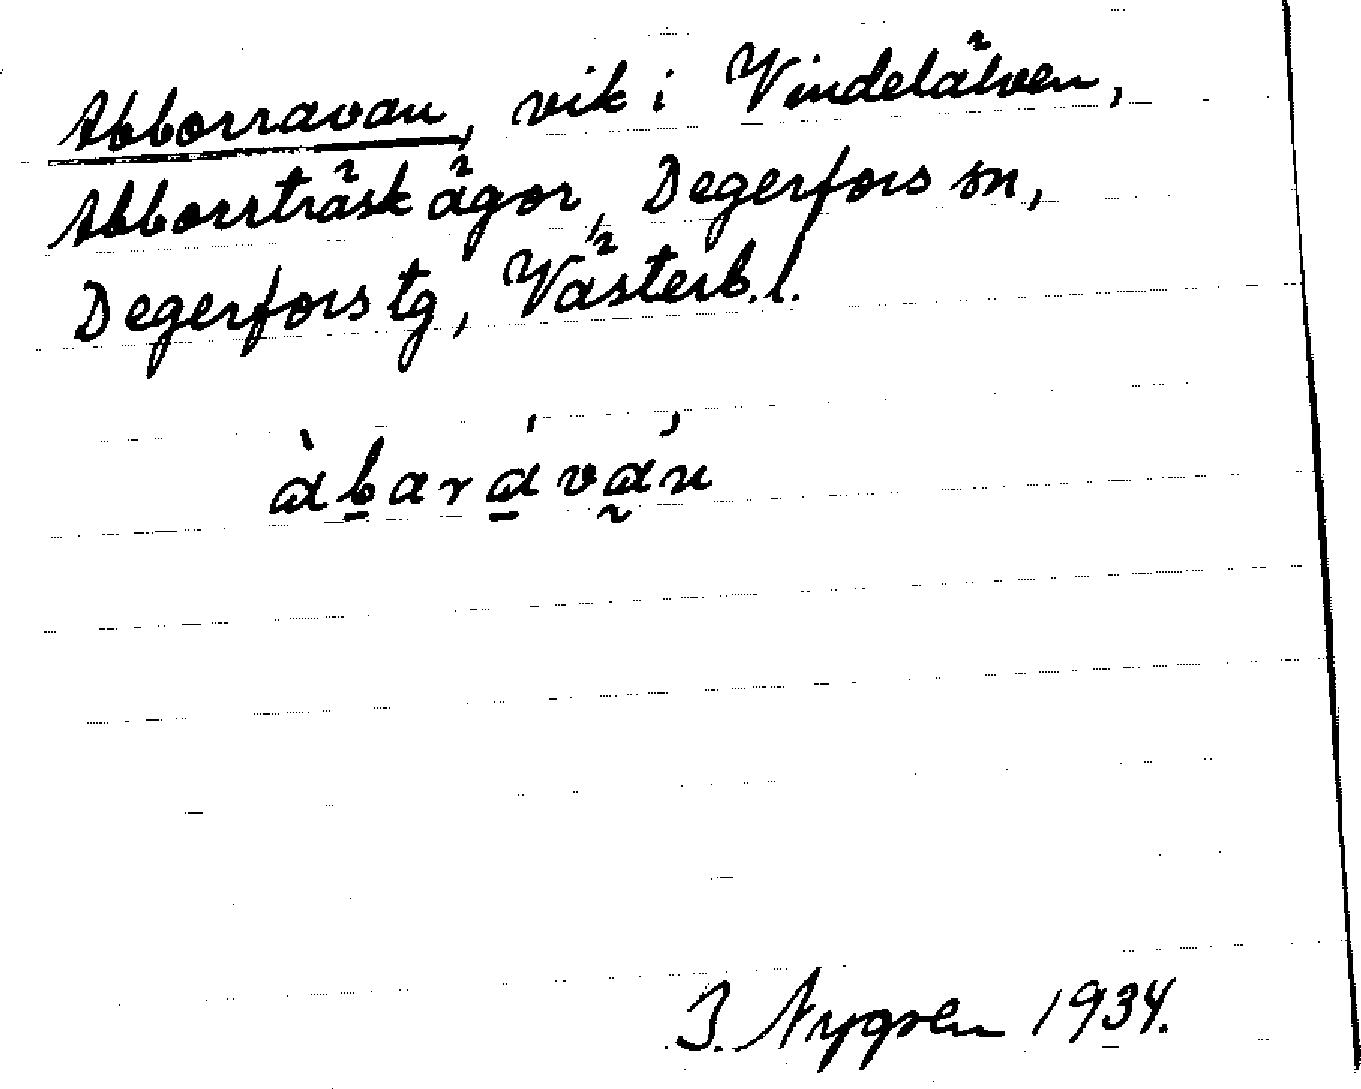 Abborravan, vik i Vindelälven,
Abborrträsk ägor, Degerfors sn,
Degerfors tg, Västerb. l.
àb̠ará̠vá̰n
I. Nygren 1934.